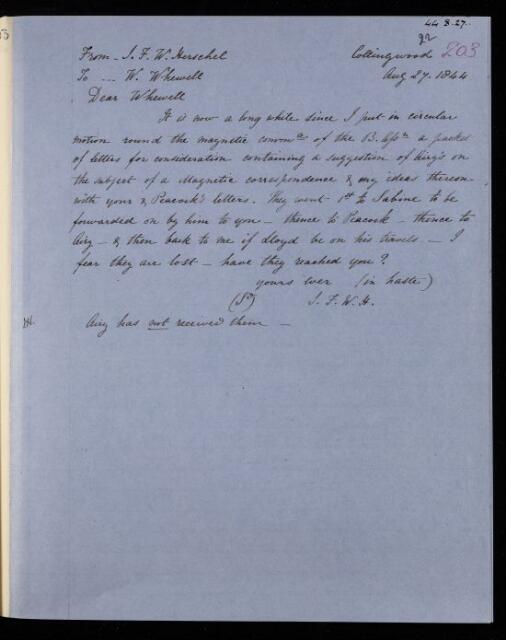 44.8.27.
22
203
From - J. F. W. Herschel Collingwood
To --- W. Whewell Aug 27. 1844
Dear Whewell
It is now a long while since I put in circular
motion round the magnetic commee of the B. Assn a packet
of letters for consideration containing a suggestion of Airy's on
the subject of a Magnetic correspondence & my ideas thereon
with your & Peacock's letters. They went 1st to Sabine to be
forwarded on by him to you - thence to Peacock - thence to
Airy - & then back to me if Lloyd be on his travels. - I
fear they are lost - have they reached you?
yours ever (in haste)
(Sd) J. F. W. H.
Airy has not received them -